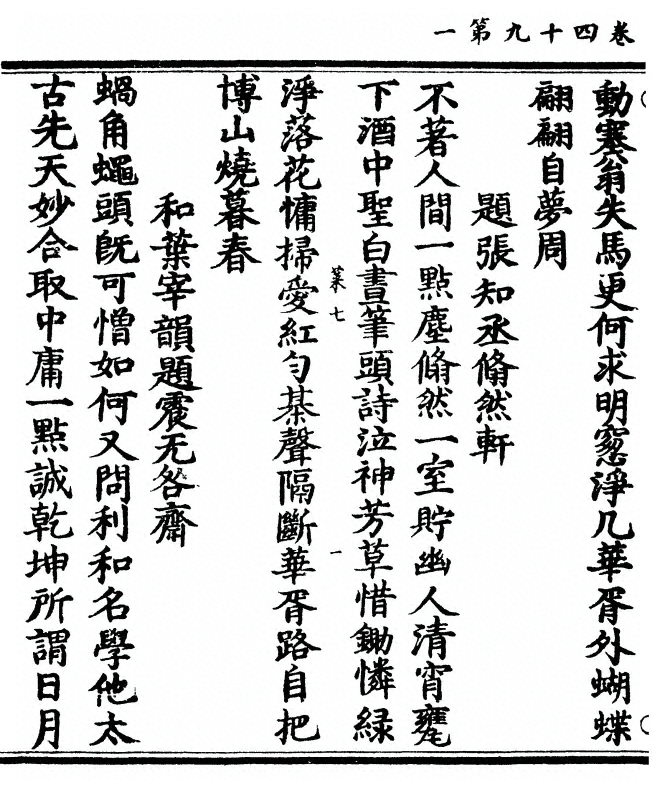 卷四十九第一
動塞翁失馬更何求明窓淨几華胥外蝴蝶
翩翩自夢周
題張知丞翛然軒
不著人間一點塵翛然一室貯幽人清宵甕
下酒中聖白晝筆頭詩泣神芳草惜鋤憐緑
葉七
一
淨落花慵掃愛紅勻棊聲隔斷華胥路自把
博山燒暮春
和葉宰韻題震无咎齋
蝸角蠅頭旣可憎如何又問利和名學他太
古先天妙合取中庸一點誠乾坤所謂日月